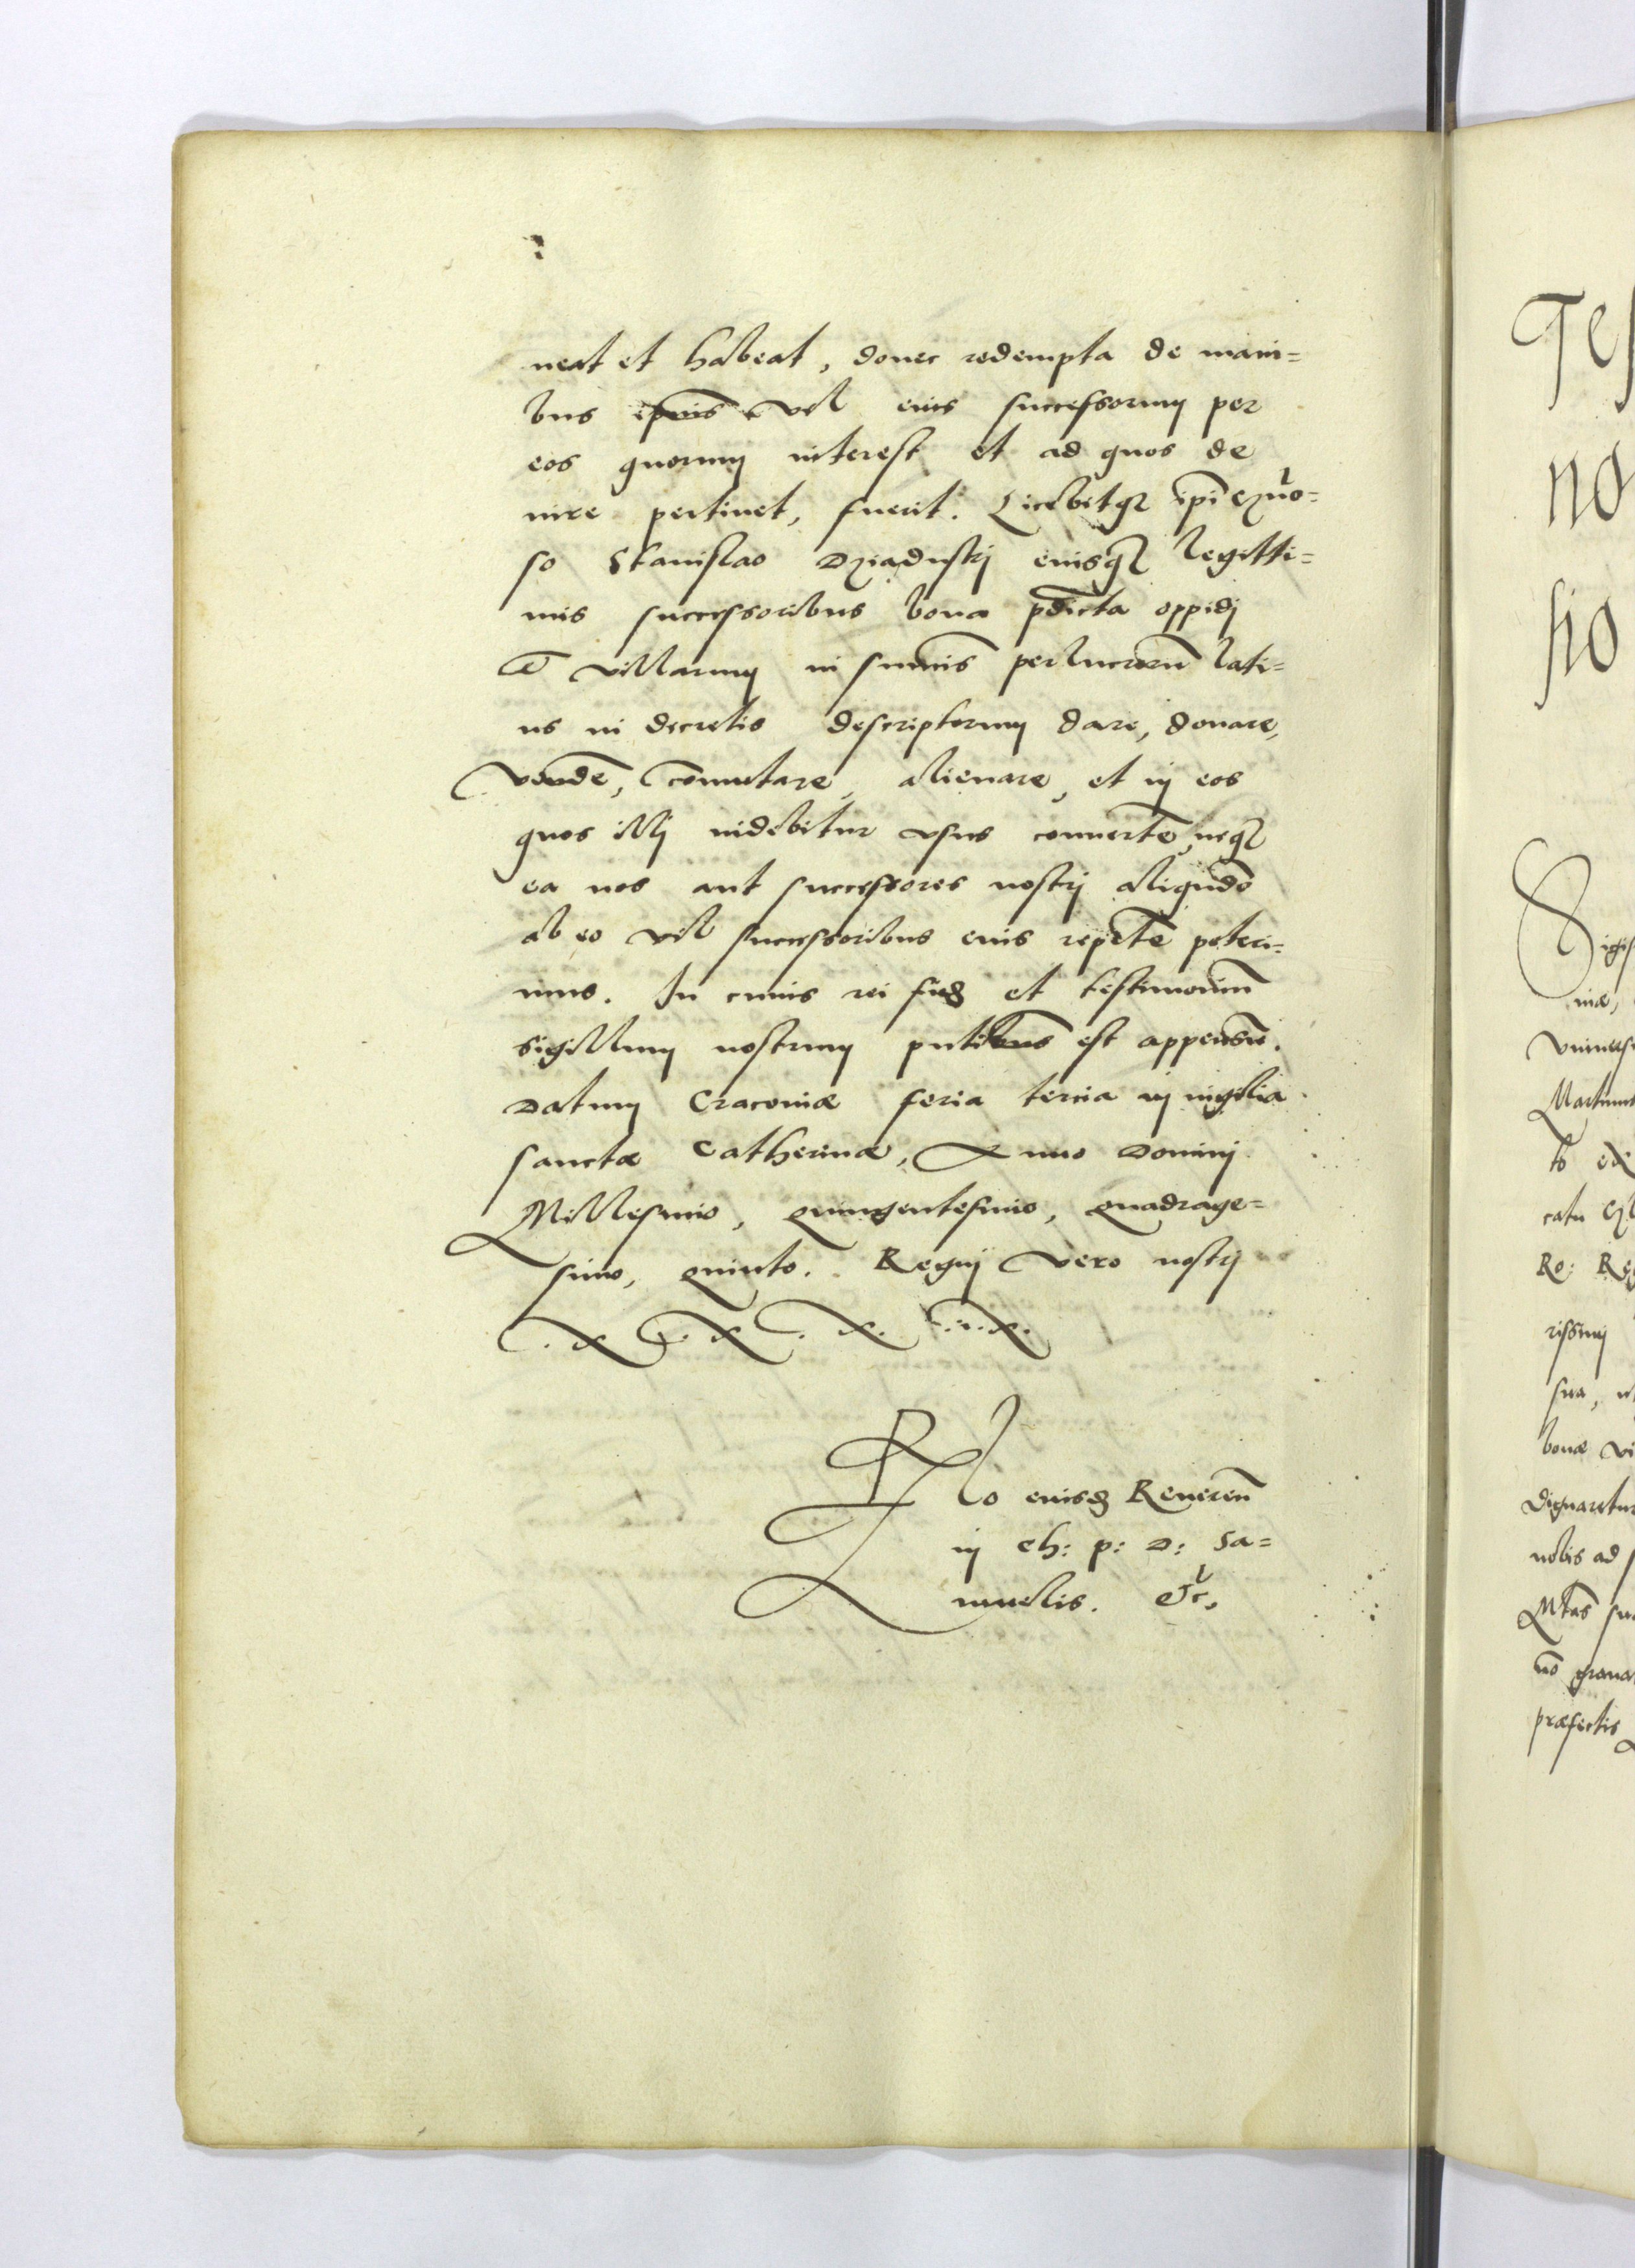 neat et habeat, donec redempta de mani=
bus ipsius vel eius successorum per
eos quorum interest et ad quos de
iure pertinet, fuerit. Licebitq3 ipi
so Stanislao Dziaduski eiusq3 legitti=
mis successoribus bona pdicta oppidi
et villarum in sum̄is lati=
us in decretis descriptorum dare, donare,
vendē, com̄utare, alienare, et in eos
quos illi uidebitur vsus conuertē, neq3
ea nos aut successores nostri aliqudo
ab eo vel successoribus eius repetē poteri=
mus. In cuius rei fid3 et testimoniū
sigillum nostrum pntibus est appensū.
Datum Cracouiæ feria tercia in uigilia
sanctæ Catherinæ, Anno Domini
Millesimo, quingentesimo, quadrage=
simo, quinto. Regni vero nostri
.X.X.X.i.x.
Rlo eiusd3 Reueren̄
in ch: p: D: Sa=
muelis. Etc.
Tes
no
sio
Sigis
niæ,
vniuersi
Martinus
to
catu
Re: Reg
rissimi
sua,
bonæ vi
dignaretur
nobis ad
Mtas sua
nō graua
præfectis